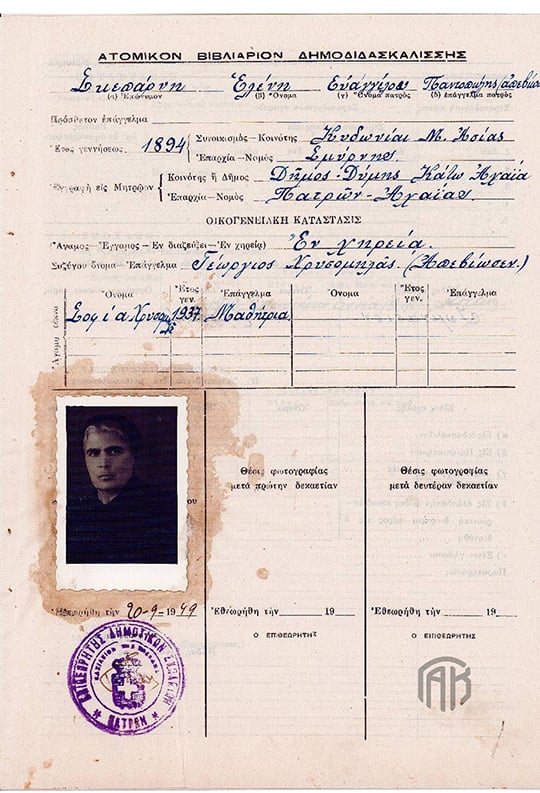 ΑΤΟΜΙΚΟΝ ΒΙΒΛΙΑΡΙΟΝ ΔΗΜΟΔΙΔΑΣΚΑΛΙΣΣΗΣ
Σκεπάρνη Ἑλένη Εὐάγγελου Παντοπώλης (ἀπεβίωσ
(α) Ἐπώνυμον (β) Ὄνομα (γ) Ὄνομα πατρός (δ) ἐπάγγελμα πατρός
Πρόσθετον ἐπάγγελμα
Ἔτος γεννήσεως 1894 Συνοικισμός—Κοινότης Κυδωνίαι Μ. Ἀσίας
Ἐπαρχία—Νομός Σμύρνης
Ἐγγραφὴ εἰς Μητρῷον Κοινότης ἢ Δῆμος Δῆμος-Δύμης Κάτω Ἀχαΐα
Ἐπαρχία—Νομός Πατρῶν-Ἀχαΐας
ΟΙΚΟΓΕΝΕΙΑΚΗ ΚΑΤΑΣΤΑΣΙΣ
Ἄγαμος—Ἔγγαμος—Ἐν διαζεύξει—Ἐν χηρείᾳ Ἐν χηρεία.
Συζύγου ὄνομα—Ἐπάγγελμα Γεώργιος Χρυσομηλᾶς. (Ἀπεβίωσεν.)
Ὄνομα Ἔτος γεν. Ἐπάγγελμα Ὄνομα Ἔτος γεν. Ἐπάγγελμα
Ἄγαμα τέκνα
Σοφία 1937 Μαθήτρια
Θέσις φωτογραφίας
μετὰ πρώτην δεκαετίαν
Θέσις φωτογραφίας
μετὰ δευτέραν δεκαετίαν
Ἐθεωρήθη τὴν 20-9-1949
Ἐθεωρήθη τὴν 19
Ἐθεωρήθη τὴν 19
Ο ΕΠΙΘΕΩΡΗΤΗΣ
Ο ΕΠΙΘΕΩΡΗΤΗΣ
ΕΠΙΘΕΩΡΗΤΗΣ ΔΗΜΟΤΙΚΩΝ ΣΧΟΛΕΙΩΝ
ΠΑΤΡΩΝ
ΓΑΚ